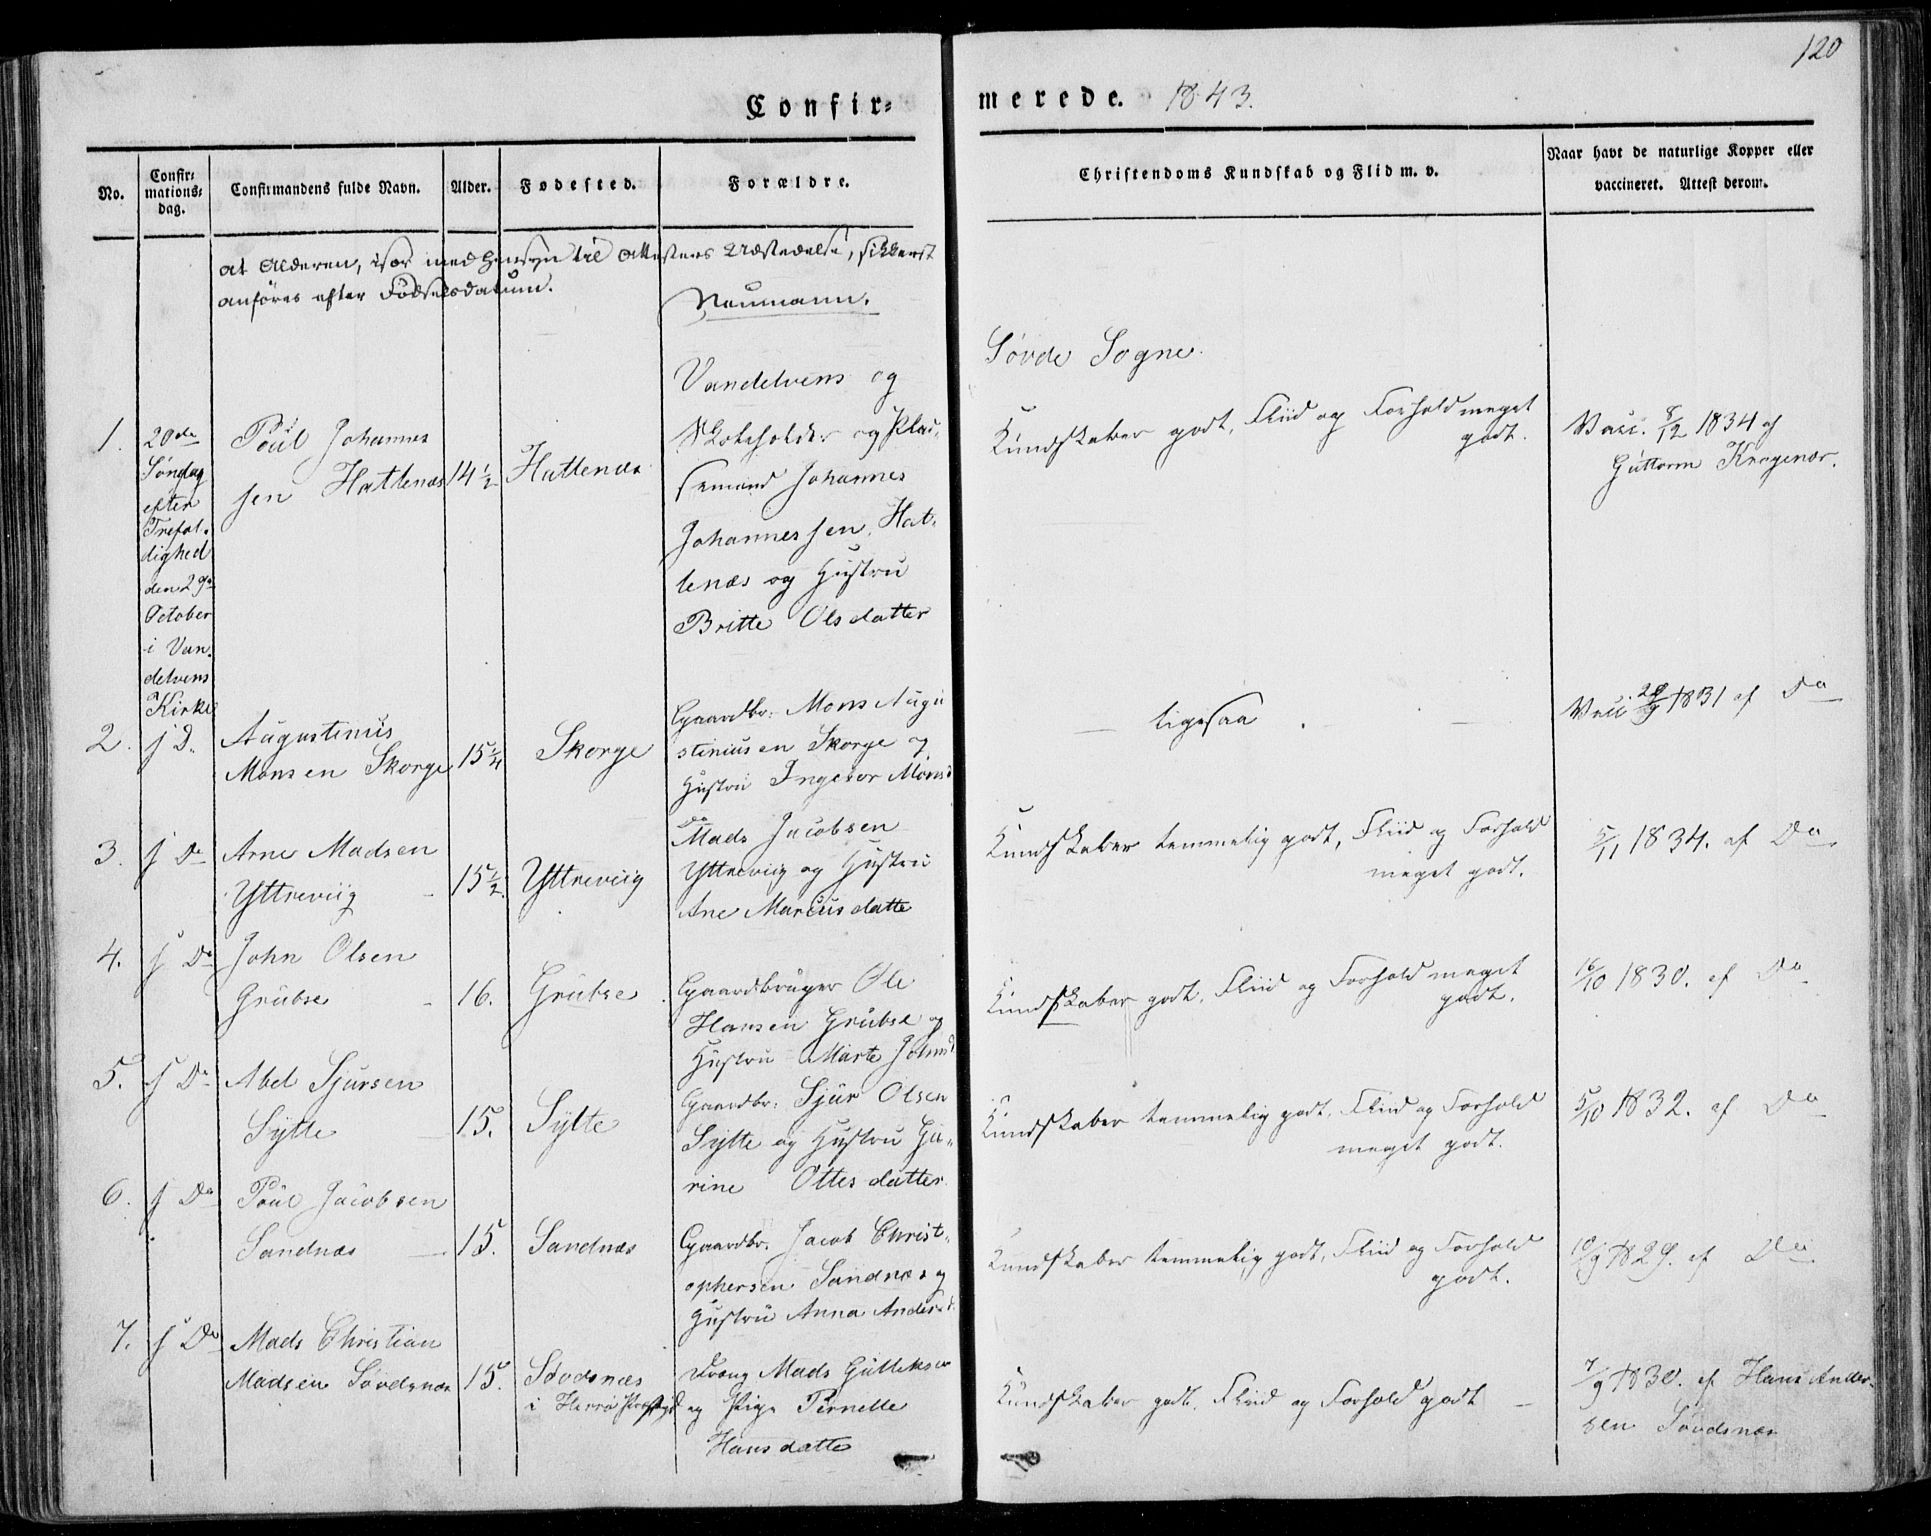 120
Confir-
merede. 1843.
No.
Confir-
mations-
dag.
Confirmandens fulde Navn.
Alder.
Fødested.
Forældre.
Christendoms Kundskab og Flid m. v.
Naar havt de naturlige Kopper eller
vaccineret. Attest derom.
at Alderen, især med Hensyn til Attesters Udstedelse, sikkerst
anføres efter Fødselsdatum.
Neumann.
Vandelvens og
Søvde Sogne.
1.
20de
Søndag
efter
Trefol-
dighed
den 29de
October
i Van-
delvens
Kirke
Poul Johannes
sen Hatlenæs
14 1/2
Hatlenæs
Skoleholder og Plad-
semand Johannes
Johannessen Hat-
lenæs og Hustru
Britte Olsdatter
Kundskaber godt, Fliid og Forhold meget
godt.
Vacc. 8/12 1834 af
Guttorm Kragenæs.
2.
f D.
Augustinus
Monsen Skorge
15 1/4
Skorge
Gaardbr. Mons Augu
stinusen Skorge og
Hustru Ingebor Monsd
ligesaa
Vacc 1831 af Do
3.
f Do
Arne Madsen
Yttreviig
15 1/2.
Yttreviig
Do
Mads Jacobsen
Yttreviig og Hustru
Ane Marcusdatte
Kundskaber temmelig godt, Fliid og Forhold
meget godt.
5/11 1834. af Do
4.
f Do
John Olsen
Grubse
16.
Grubse
Gaardbruger Ole
Hansen Grubse og
Hustru Marte Johnsd
Kundskaber godt, Fliid og Forhold meget
godt.
16/10 1830. af Do
5.
f Do
Abel Sjursen
Sylte
15.
Sylte
Gaardbr: Sjur Olsen
Sylte og Hustru Gu-
rine Ottesdatter
Kundskaber temmelig godt, Fliid og Forhold
meget godt.
5/10 1832. af Do
6.
f Do
Poul Jacobsen
Sandnæs
15.
Sandnæs
Gaardbr. Jacob Christ-
ophersen Sandnæs og
Hustru Anna Andersd.
Kundskaber temmelig godt, Fliid og Forhold
godt.
10/9 1829. af Do
7.
f Do
Mads Christian
Madsen Søvdsnæs
15.
Søvdsnæs
i Herrø Prstgjd
Dreng Mads Gulleksen
og Pige Pernelle
Hansdatte
Kundskaber godt, Fliid og Forhold godt
7/9 1830. af Hans Ander-
sen Søvdsnæs